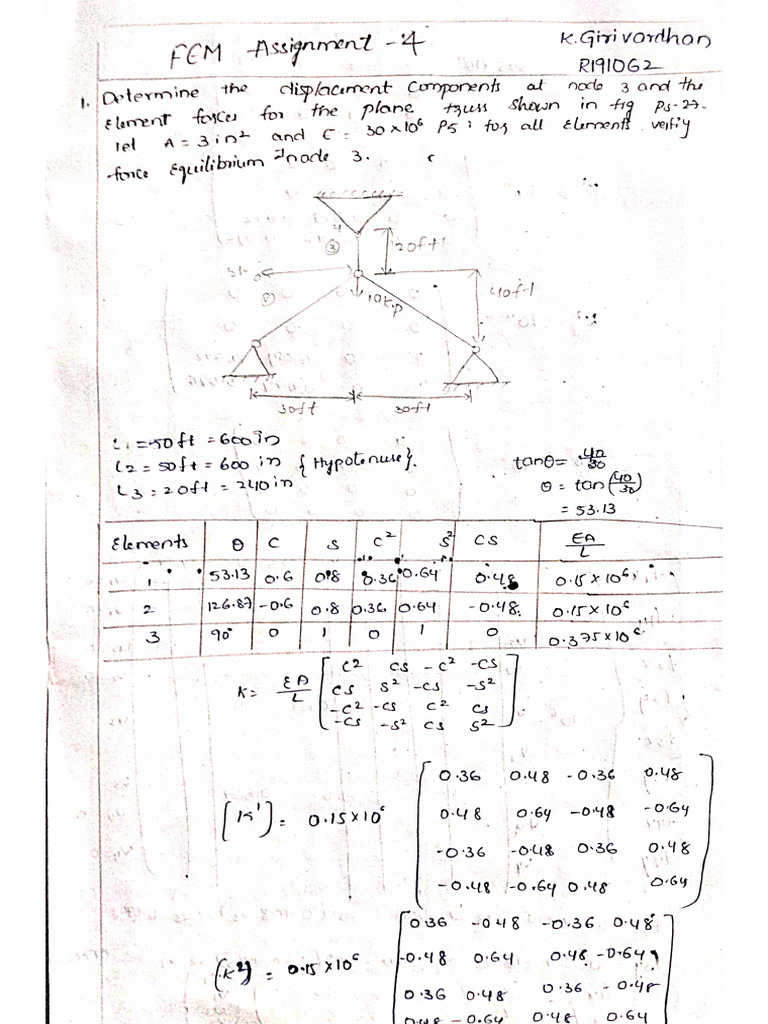 FEM Assignment - 4
K. Giri vardhan
R191062
1. Determine the displacement Components at node 3 and the
Element forces for the plane truss shown in fig P5-27.
let A = 3 in² and E = 30×10⁶ PSi for all Elements. verify
force Equilibrium node 3.
4
③
20ft
10K.P
40ft
30ft 30ft
L1 = 50ft = 600in
L2 = 50ft = 600 in {Hypotenuse}.
L3 = 20ft = 240 in
tanθ = 40/30
θ = tan(40/30)
= 53.13
Elements θ C S C² S² CS EA/L
1 53.13 0.6 0.8 0.36 0.64 0.48 0.15×10⁶
2 126.87 -0.6 0.8 0.36 0.64 -0.48 0.15×10⁶
3 90° 0 1 0 1 0 0.375×10⁶
K = EA/L [ C² CS -C² -CS
CS S² -CS -S²
-C² -CS C² CS
-CS -S² CS S² ]
[K¹] = 0.15×10⁶ [ 0.36 0.48 -0.36 0.48
0.48 0.64 -0.48 -0.64
-0.36 -0.48 0.36 0.48
-0.48 -0.64 0.48 0.64 ]
[K²] = 0.15×10⁶ [ 0.36 -0.48 -0.36 0.48
-0.48 0.64 0.48 -0.64
0.36 0.48 0.36 -0.48
0.48 -0.64 0.48 0.64